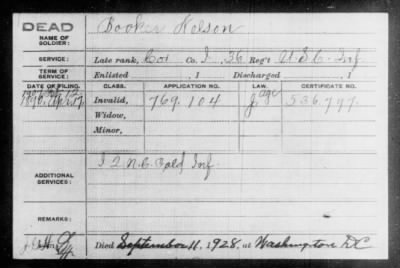 DEAD
NAME OF SOLDIER: Booker Nelson
SERVICE: Late rank, Co. I, 36 Reg't U.S.C. Inf
TERM OF SERVICE: Enlisted , 1 Discharged , 1
DATE OF FILING. CLASS. APPLICATION NO. LAW. CERTIFICATE NO.
Invalid, 769.104 age 536.797.
Widow,
Minor,
ADDITIONAL SERVICES: I 2 N.C. Cold Inf.
REMARKS:
Died September 11, 1928, at Washington DC